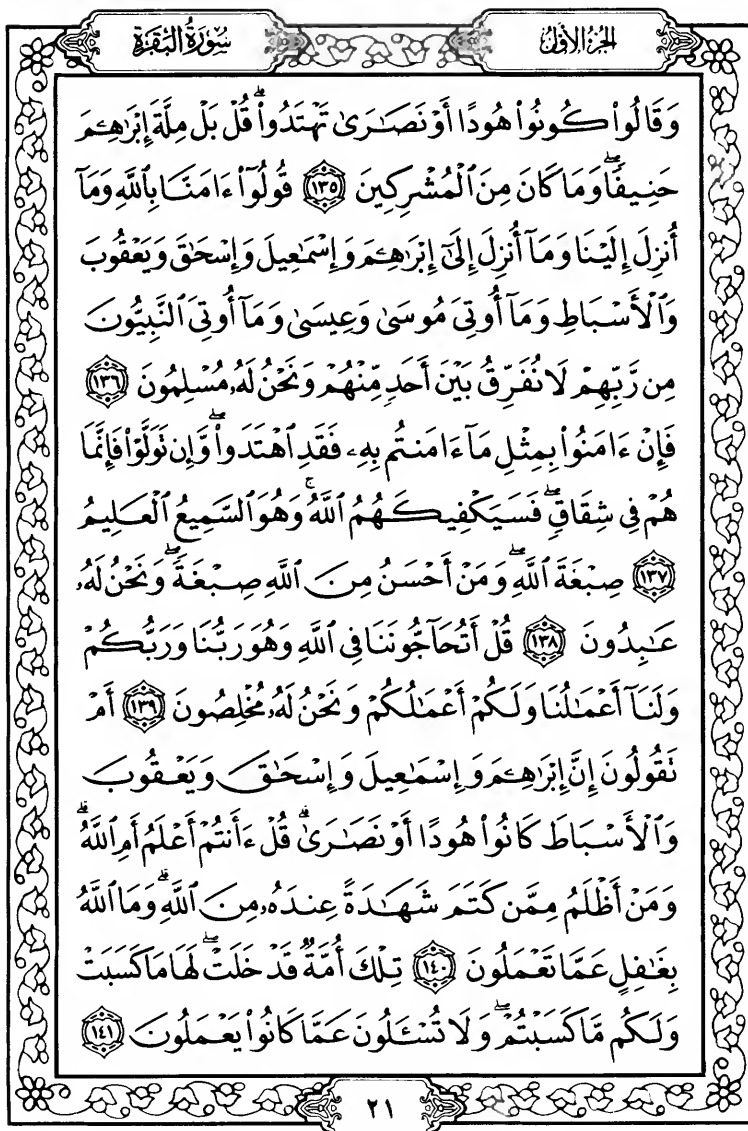 الجزء الأول
سورة البقرة
وَقَالُوا۟ كُونُوا۟ هُودًا أَوْ نَصَـٰرَىٰ تَهْتَدُوا۟ ۗ قُلْ بَلْ مِلَّةَ إِبْرَٰهِـۧمَ
حَنِيفًا ۖ وَمَا كَانَ مِنَ ٱلْمُشْرِكِينَ ١٣٥ قُولُوٓا۟ ءَامَنَّا بِٱللَّهِ وَمَآ
أُنزِلَ إِلَيْنَا وَمَآ أُنزِلَ إِلَىٰٓ إِبْرَٰهِـۧمَ وَإِسْمَـٰعِيلَ وَإِسْحَـٰقَ وَيَعْقُوبَ
وَٱلْأَسْبَاطِ وَمَآ أُوتِىَ مُوسَىٰ وَعِيسَىٰ وَمَآ أُوتِىَ ٱلنَّبِيُّونَ
مِن رَّبِّهِمْ لَا نُفَرِّقُ بَيْنَ أَحَدٍ مِّنْهُمْ وَنَحْنُ لَهُۥ مُسْلِمُونَ ١٣٦
فَإِنْ ءَامَنُوا۟ بِمِثْلِ مَآ ءَامَنتُم بِهِۦ فَقَدِ ٱهْتَدَوا۟ ۖ وَّإِن تَوَلَّوْا۟ فَإِنَّمَا
هُمْ فِى شِقَاقٍ ۖ فَسَيَكْفِيكَهُمُ ٱللَّهُ ۚ وَهُوَ ٱلسَّمِيعُ ٱلْعَلِيمُ
١٣٧ صِبْغَةَ ٱللَّهِ ۖ وَمَنْ أَحْسَنُ مِنَ ٱللَّهِ صِبْغَةً ۖ وَنَحْنُ لَهُۥ
عَـٰبِدُونَ ١٣٨ قُلْ أَتُحَآجُّونَنَا فِى ٱللَّهِ وَهُوَ رَبُّنَا وَرَبُّكُمْ
وَلَنَآ أَعْمَـٰلُنَا وَلَكُمْ أَعْمَـٰلُكُمْ وَنَحْنُ لَهُۥ مُخْلِصُونَ ١٣٩ أَمْ
تَقُولُونَ إِنَّ إِبْرَٰهِـۧمَ وَإِسْمَـٰعِيلَ وَإِسْحَـٰقَ وَيَعْقُوبَ
وَٱلْأَسْبَاطَ كَانُوا۟ هُودًا أَوْ نَصَـٰرَىٰ ۗ قُلْ ءَأَنتُمْ أَعْلَمُ أَمِ ٱللَّهُ ۗ
وَمَنْ أَظْلَمُ مِمَّن كَتَمَ شَهَـٰدَةً عِندَهُۥ مِنَ ٱللَّهِ ۗ وَمَا ٱللَّهُ
بِغَـٰفِلٍ عَمَّا تَعْمَلُونَ ١٤٠ تِلْكَ أُمَّةٌ قَدْ خَلَتْ ۖ لَهَا مَا كَسَبَتْ
وَلَكُم مَّا كَسَبْتُمْ ۖ وَلَا تُسْـَٔلُونَ عَمَّا كَانُوا۟ يَعْمَلُونَ ١٤١
٢١